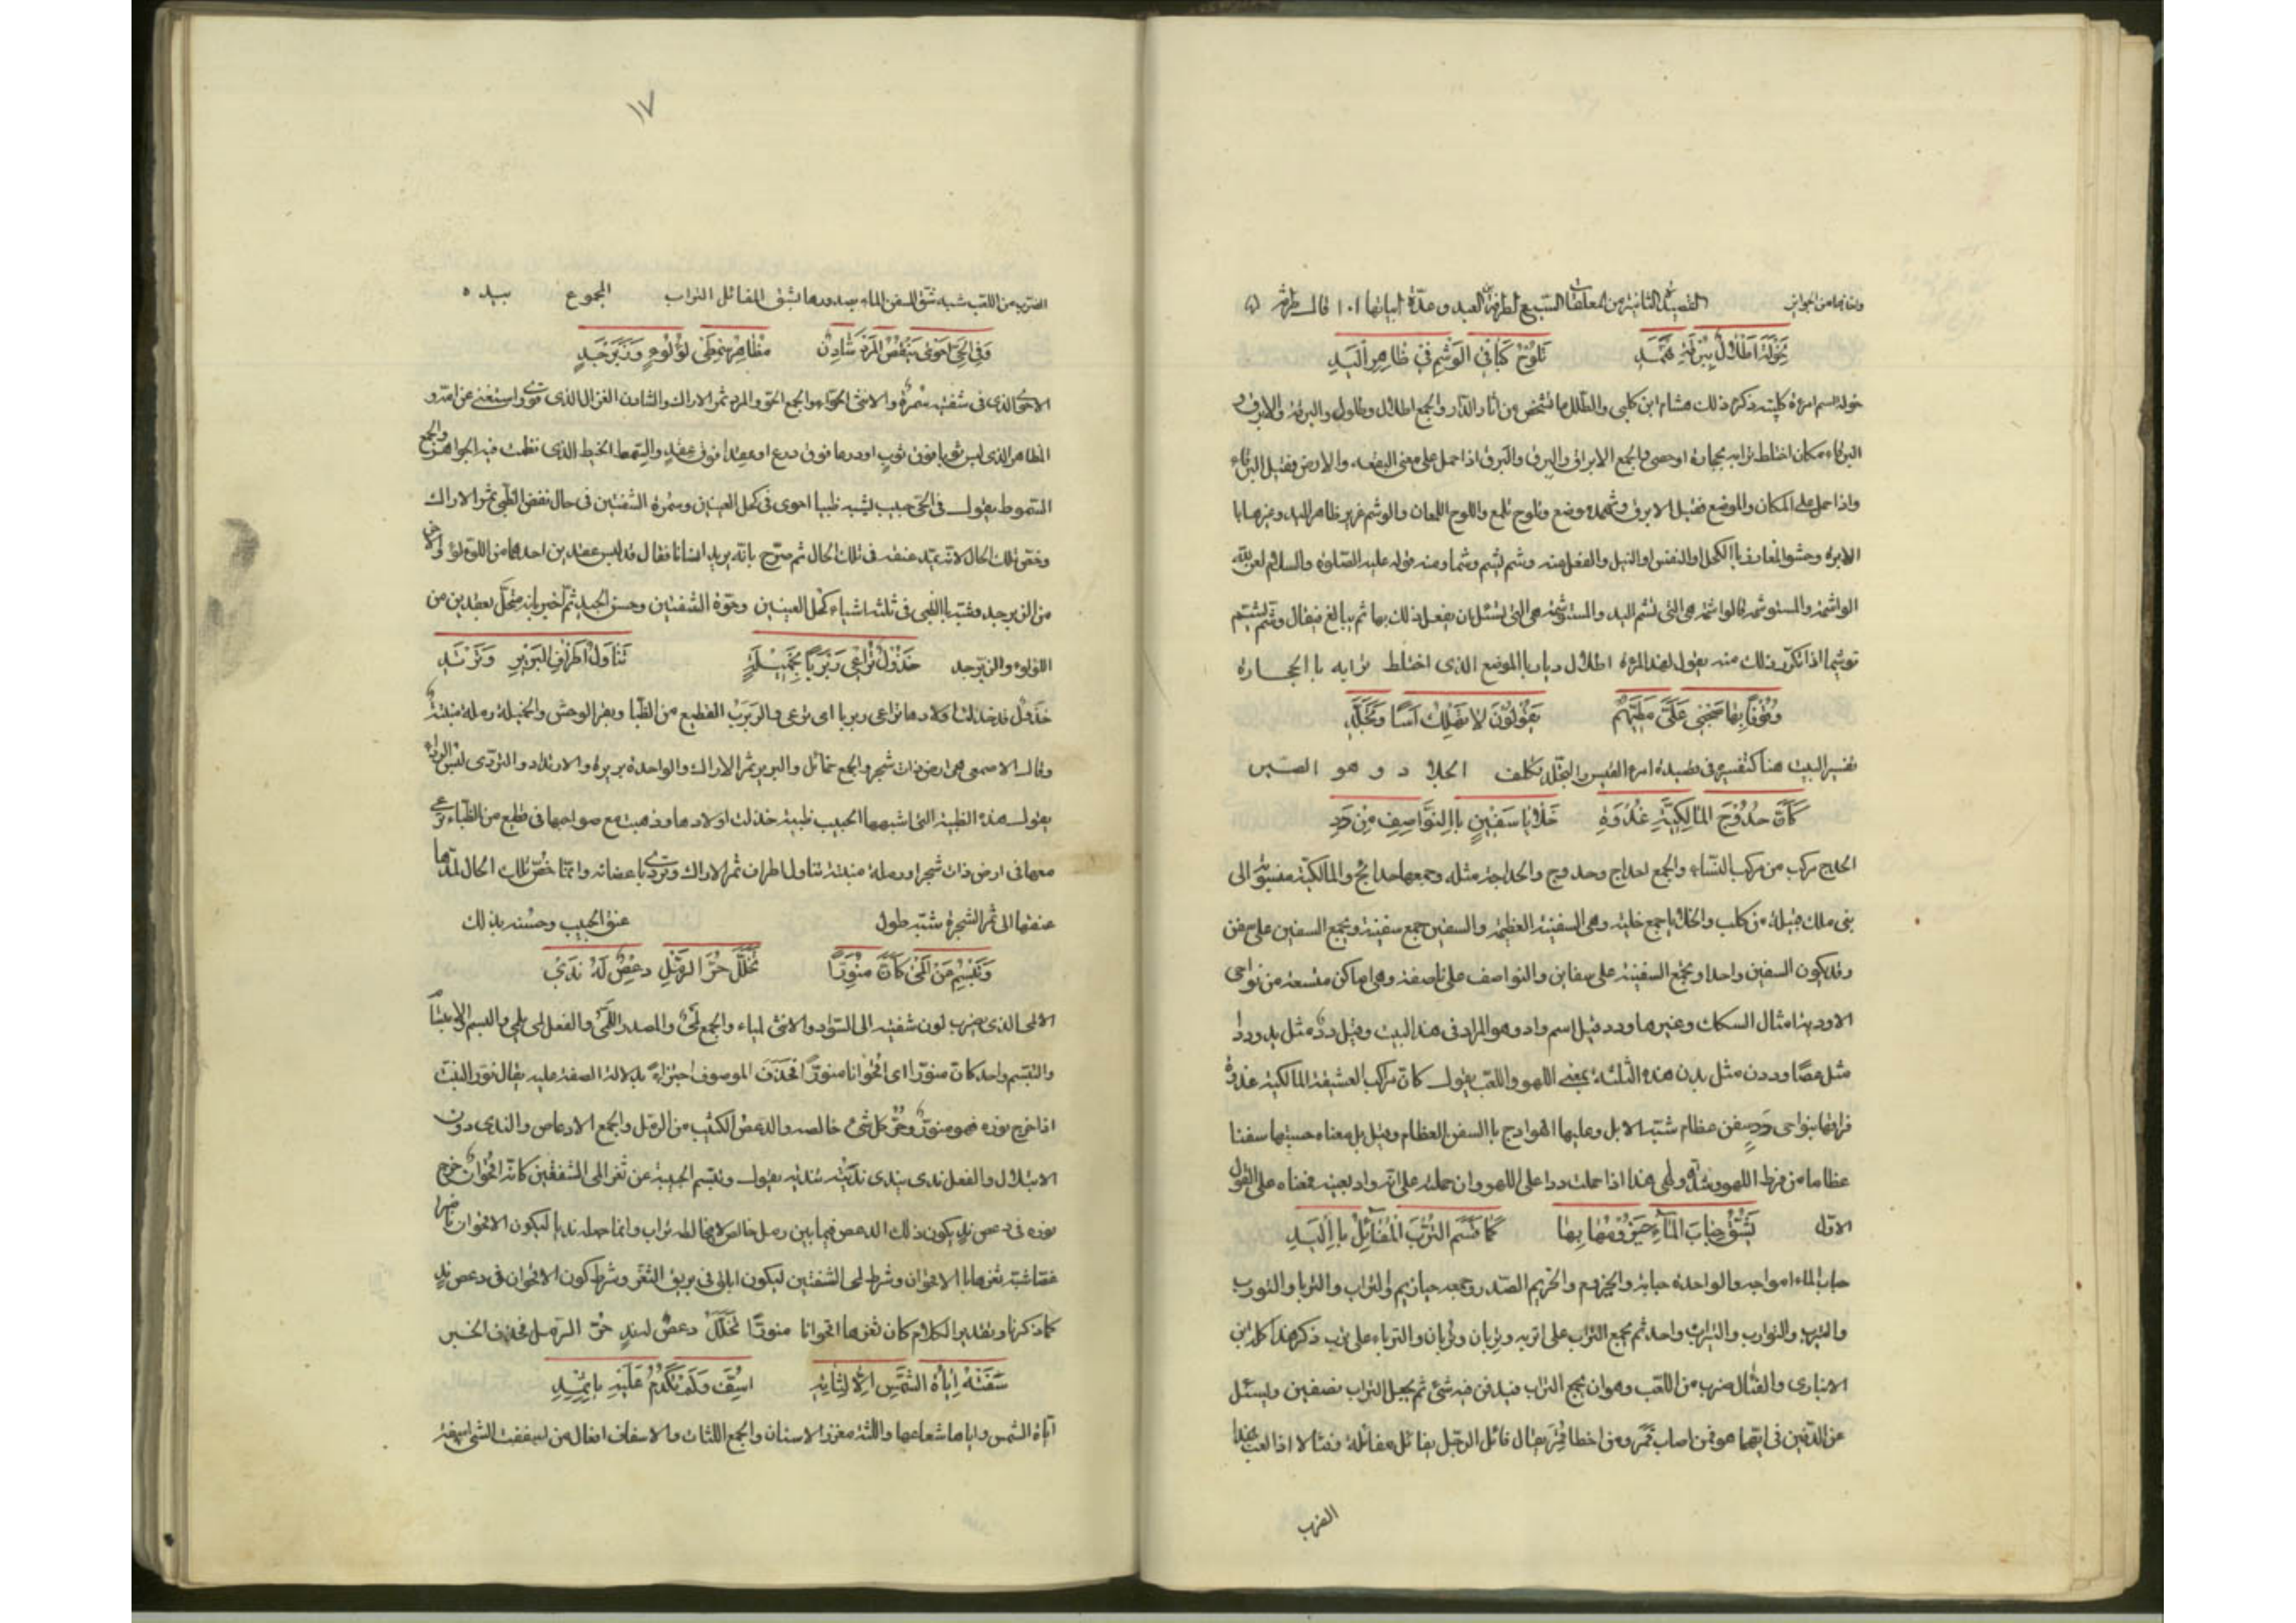 القصيدة الثانية من المعلقات السبع لطرفة بن العبد وعدة ابياتها ١٠١ قال طرفة
لِخَوْلَةَ اَطْلَالٌ بِبُرْقَةِ ثَهْمَدِ تَلُوحُ كَبَاقِي الوَشْمِ فِي ظَاهِرِ الْيَدِ
خولة اسم امرءة كلبية ذكر ذلك هشام ابن كلبي والطلل ما شخص من آثار الدار والجمع اطلال وطلول والبرقة والابرق و
البرقاء مكان اختلط ترابه بحجارة او حصى والجمع الابراق والبرق والبرق اذا حمل على معنى البقعة والارض فقيل البرقاء
واذا حمل على المكان والموضع فقيل الابرق وثهمد موضع وتلوح تلمع واللوح اللمعان والوشم غرز ظاهر اليد وغيرها با
الابرة وحشو المغارز باالكحل او النقس او النيل والفعل منه وشم يشم وشما ومنه قوله عليه الصلوة والسلام لعن الله
الواشمة والمستوشمة فالواشمة هي التي تشم اليد والمستوشمة هي التي تسئل ان يفعل ذلك بها ثم يبالغ فيقال وشّم يشتم
توشيما اذا تكرر ذلك منه يقول لهذه المرءة اطلال ديار باالموضع الذى اختلط ترابه باالحجارة
وُقُوفًا بِهَا صَحْبِي عَلَيَّ مَطِيَّهُمْ يَقُولُونَ لا تَهْلِكْ اَسًا وَتَجَلَّدِ
تفسير البيت هنا كتفسيره في قصيدة امرء القيس والتجلد تكلف الجلادو وهو الصبر
كَأَنَّ حُدُوجَ المَالِكِيَّةِ غُدْوَةً خَلَايَا سَفِيْنٍ بِاالنَّوَاصِفِ مِنْ دَدِ
الحدج مركب من مراكب النساء والجمع احداج وحدوج والحداجة مثله وجمعها حدائج والمالكية منسوبة الى
بني مالك قبيلة من كلب والخلايا جمع خلية وهي السفينة العظيمة والسفين جمع سفينة ويجمع السفين على سفن
وقد يكون السفين واحدا ويجمع السفينة على سفاين والنواصف على ناصفة وهي اماكن متسعة من نواحى
الاودية امثال السكك وغيرها ودد قيل اسم واد وهو المراد في هذا البيت وقيل دد مثل يد وددا
مثل عصًا وددن مثل بدن هذه الثلثة بمعنى اللهو واللعب يقول كان مراكب العشيقة المالكية غدوة
فراقها بنواحى دد سفن عظام شبه الابل وعليها الهوادج باالسفن العظام وقيل بل معناه حسبتها سفنا
عظاما من فرط اللهو وهذا اذا حملت ددا على اللهو وان حملته على انه واد بعينه فمعناه على القول
الاول يَشُقُّ حَبَابَ المَاءِ حَيْزُومُهَا بِهَا كَمَا قَسَمَ التُّرْبَ المُفَائِلُ بِاالْيَدِ
حباب الماء امواجه والواحدة حبابة والحيزوم والحزيم الصدر وجمعه حيازيم والتراب والتربا والتورب
والتيرب والتوارب والتيراب واحد ثم يجمع التراب على اتربه وتربان وتربان والترباء على ترب ذكر هذا كله ابن
الانبارى والفئال ضرب من اللعب وهو ان يجمع التراب فيدفن فيه شئ ثم يجعل التراب نصفين ويسئل
عن الدفين في ايهما هو فمن اصاب قمر ومن اخطا قمر يقال فائل الرجل يفائل مفائلة وفئالا اذا لعب بهذا
الضرب
١٧
الضرب من اللعب شبه شق السفن الماء بصدورها بشق المفائل التراب المجموع بيده ٥
وَفِي الحَيِّ اَحْوَى يَنْفُضُ المَرْدَ شَادِنٌ مُظَاهِرُ سِمْطَيْ لُؤْلُؤٍ وَزَبَرْجَدِ
الاحوى الذى في شفتيه سمرة والانثى الحوّاء والجمع الحوّ والمرد ثمر الاراك والشادن الغزال الذى قوى واستغنى عن امه و
المظاهر الذى لبس ثوبا فوق ثوب او درعا فوق درع او عقدا فوق عقد والسمط الخيط الذى نظمت فيه الجواهر والجمع
السموط يقول في الحى حبيب يشبه ظبيا احوى في كحل العينين وسمرة الشفتين في حال نفض الظبى ثمر الاراك
وخص تلك الحال لانه يمد عنقه في تلك الحال ثم صرح بانه يريد انسانا فقال قد لبس عقدين احدهما من اللؤلؤ والاخر
من الزبرجد وشبه باالظبى في ثلثة اشياء كحل العينين وحوّة الشفتين وحسن الجيد ثم اخبر بانه متحلّ بعقدين من
اللؤلؤ والزبرجد خَذُولٌ تُرَاعِي رَبْرَبًا بِخَمِيْلَةٍ تَنَاوَلُ اَطْرَافَ البَرِيْرِ وَتَرْتَدِي
خذول قد خذلت اولادها تراعى ربربا اى ترعى والربرب القطيع من الظبا وبقر الوحش والخميلة رملة منبتة
وقال الاصمعى هي ارض ذات شجر والجمع خمائل والبرير ثمر الاراك والواحدة بريرة والارتداد والتردى لبس الرداء
يقول هذه الظبية التى اشبهها الحبيب ظبية خذلت اولادها وذهبت مع صواحبها في قطيع من الظباء ترعى
معها في ارض ذات شجر او رملة منبتة تتناول اطراف ثمر الاراك وتردى باغصانه وانما خص تلك الحال لمدها
عنقها الى ثمر الشجرة شبه طول عنق الحبيب وحسنه بذلك
وَتَبْسِمُ عَنْ اَلْمَى كَأَنَّ مُنَوِّرًا تَخَلَّلَ حُرَّ الرَّمْلِ دِعْصٌ لَهُ نَدِيْ
الالمى الذى يضرب لون شفتيه الى السواد والانثى لمياء والجمع لمىٌ والمصدر اللّمى والفعل لمى يلمى والبسم والابتسام
والتبسم واحد كان منورا اى اقحوانا منورًا فحذف الموصوف اجتزاءً بدلالة الصفة عليه يقال نور النبت
اذا خرج نوره فهو منور وحرّ كل شئ خالصه والدعص الكثيب من الرمل والجمع الادعاص والندى دون
الابتلال والفعل ندى يندى ندًى ونديته تندية يقول وتبسم الحبيبة عن ثغر المى الشفتين كانه اقحوان خرج
نوره في دعص ند يكون ذلك الدعص فيما بين رمل خالص لا يخالطه تراب وانما جعله نديا ليكون الاقحوان ناضرا
شبه ثغرها باالاقحوان وشرط لمى الشفتين ليكون ابلغ في بريق الثغر وشرط كون الاقحوان في دعص ند
كما ذكرنا وتقدير الكلام كان ثغرها اقحوانا منورًا تخلل دعصٌ له ند حرّ الرمل فحذف الخبر
سَقَتْهُ اِيَاةُ الشَّمْسِ اِلَّا لِثَاتِهِ اُسِفَّ وَلَمْ تَكْدِمْ عَلَيْهِ بِاِثْمِدِ
اياة الشمس واياها شعاعها واللثة مغرز الاسنان والجمع اللثات والاسفاف افعال من سففت الشئ اسفه